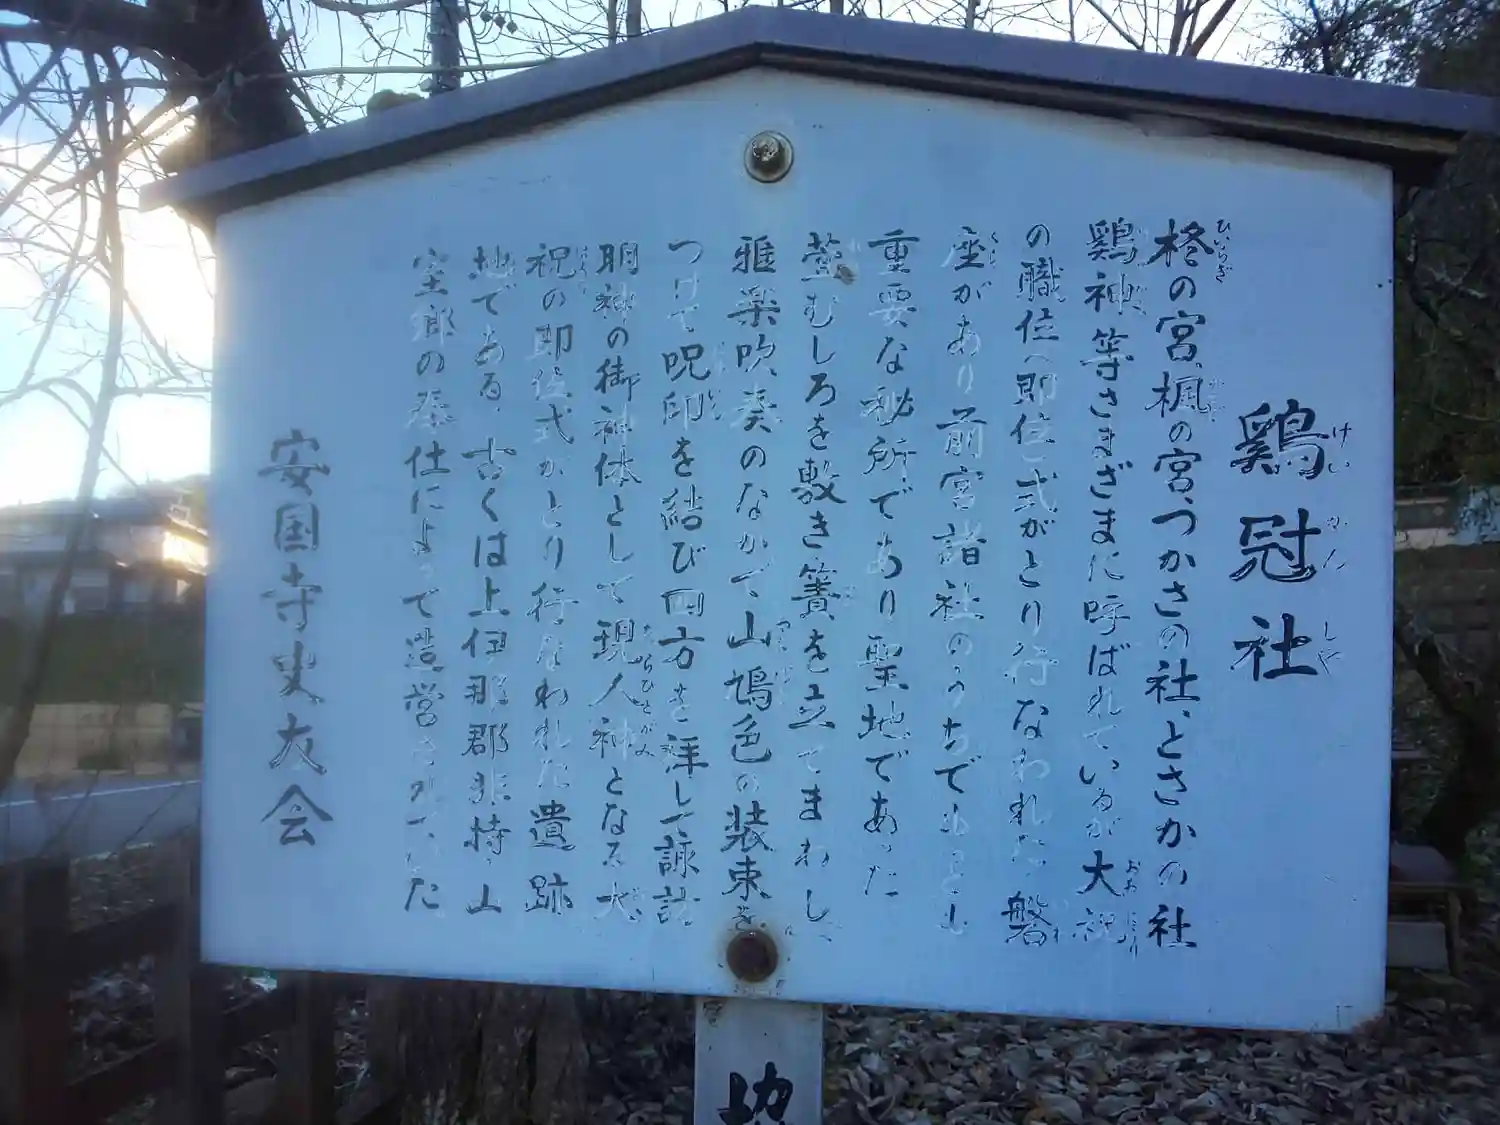 鶏冠社
けいかんしゃ
柊の宮、楓の宮、つかさの社、とさかの社
ひいらぎ
鶏神等さまざまに呼ばれているが大祝
おおほうり
の職位へ即位式がとり行なわれた。磐
座があり前宮諸社のうちでもとし
重要な秘所であり聖地であった
むしろを敷き簀を立てまわし、
雅楽吹奏のなかで山鳩色の装束を
つけて呪印を結び四方を拝して諏訪
明神の御神体として現人神となる大
あらひとがみ
祝の即位式がとり行なわれた遺跡
地である。古くは上伊那郡非持、山
室郷の奉仕によって造営されていた
安国寺史友会